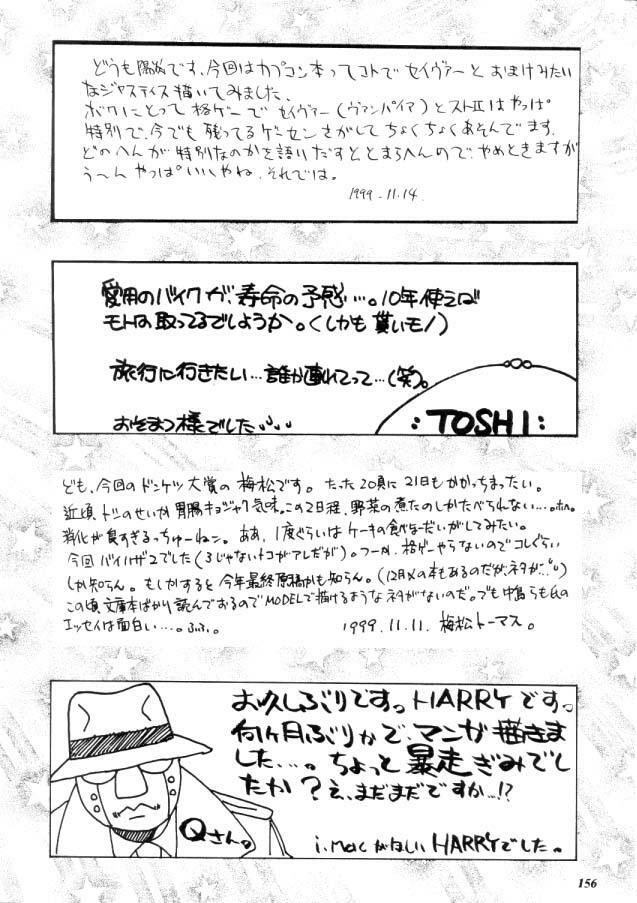 どうも陽気です、今回はカプコン本ってコトでセイヴァーとおまけみたい
なジャスティス描いてみました、
ボクにとって格ゲーでセイヴァー(ヴァンパイア)とストⅡはやっぱ
特別で、今でも残ってるゲーセンさがしてちょくちょくあそんでます、
どのへんが特別なのかを語りだすととまらへんので、やめときますが
う〜んやっぱいいやね、それでは。
1999.11.14.
愛用のバイクが、寿命の予感…。10年使えば
モトは取ってるでしょうか。(しかも貰いモノ)
旅行に行きたい…誰か連れてって…(笑)。
おそまつ様でした
:TOSHI:
ども、今回のドンケツ大賞の梅松です。たった20頁に21日もかかっちまったい。
近頃、トシのせいか胃腸キョジャク気味。この2日程、野菜の煮たのしかたべられない…。
消化が良すぎるっちゅーねン。ああ、1度ぐらいはケーキの食べなーだいがしてみたい。
今回バイハザ2でした(3じゃないトコがアレだが)。フーか、格ゲーやらないのでコレぐらい
しか知らん。もしかすると今年最終原稿かも知らん。(12月〆の本もあるのだが、ネタが…)
この頃、文庫本ばかり読んでおるのでMODELで描けるようなネタがないのだ。でも中島らも氏の
エッセイは面白い…。ふふ。
1999.11.11. 梅松トーマス。
お久しぶりですっHARRYですっ
何ヶ月ぶりかで、マンガ描きま
した…。ちょっと暴走ぎみでし
たか?え、まだまだですか…!?
Qさん。
i.MacがほしいHARRYでした。
156